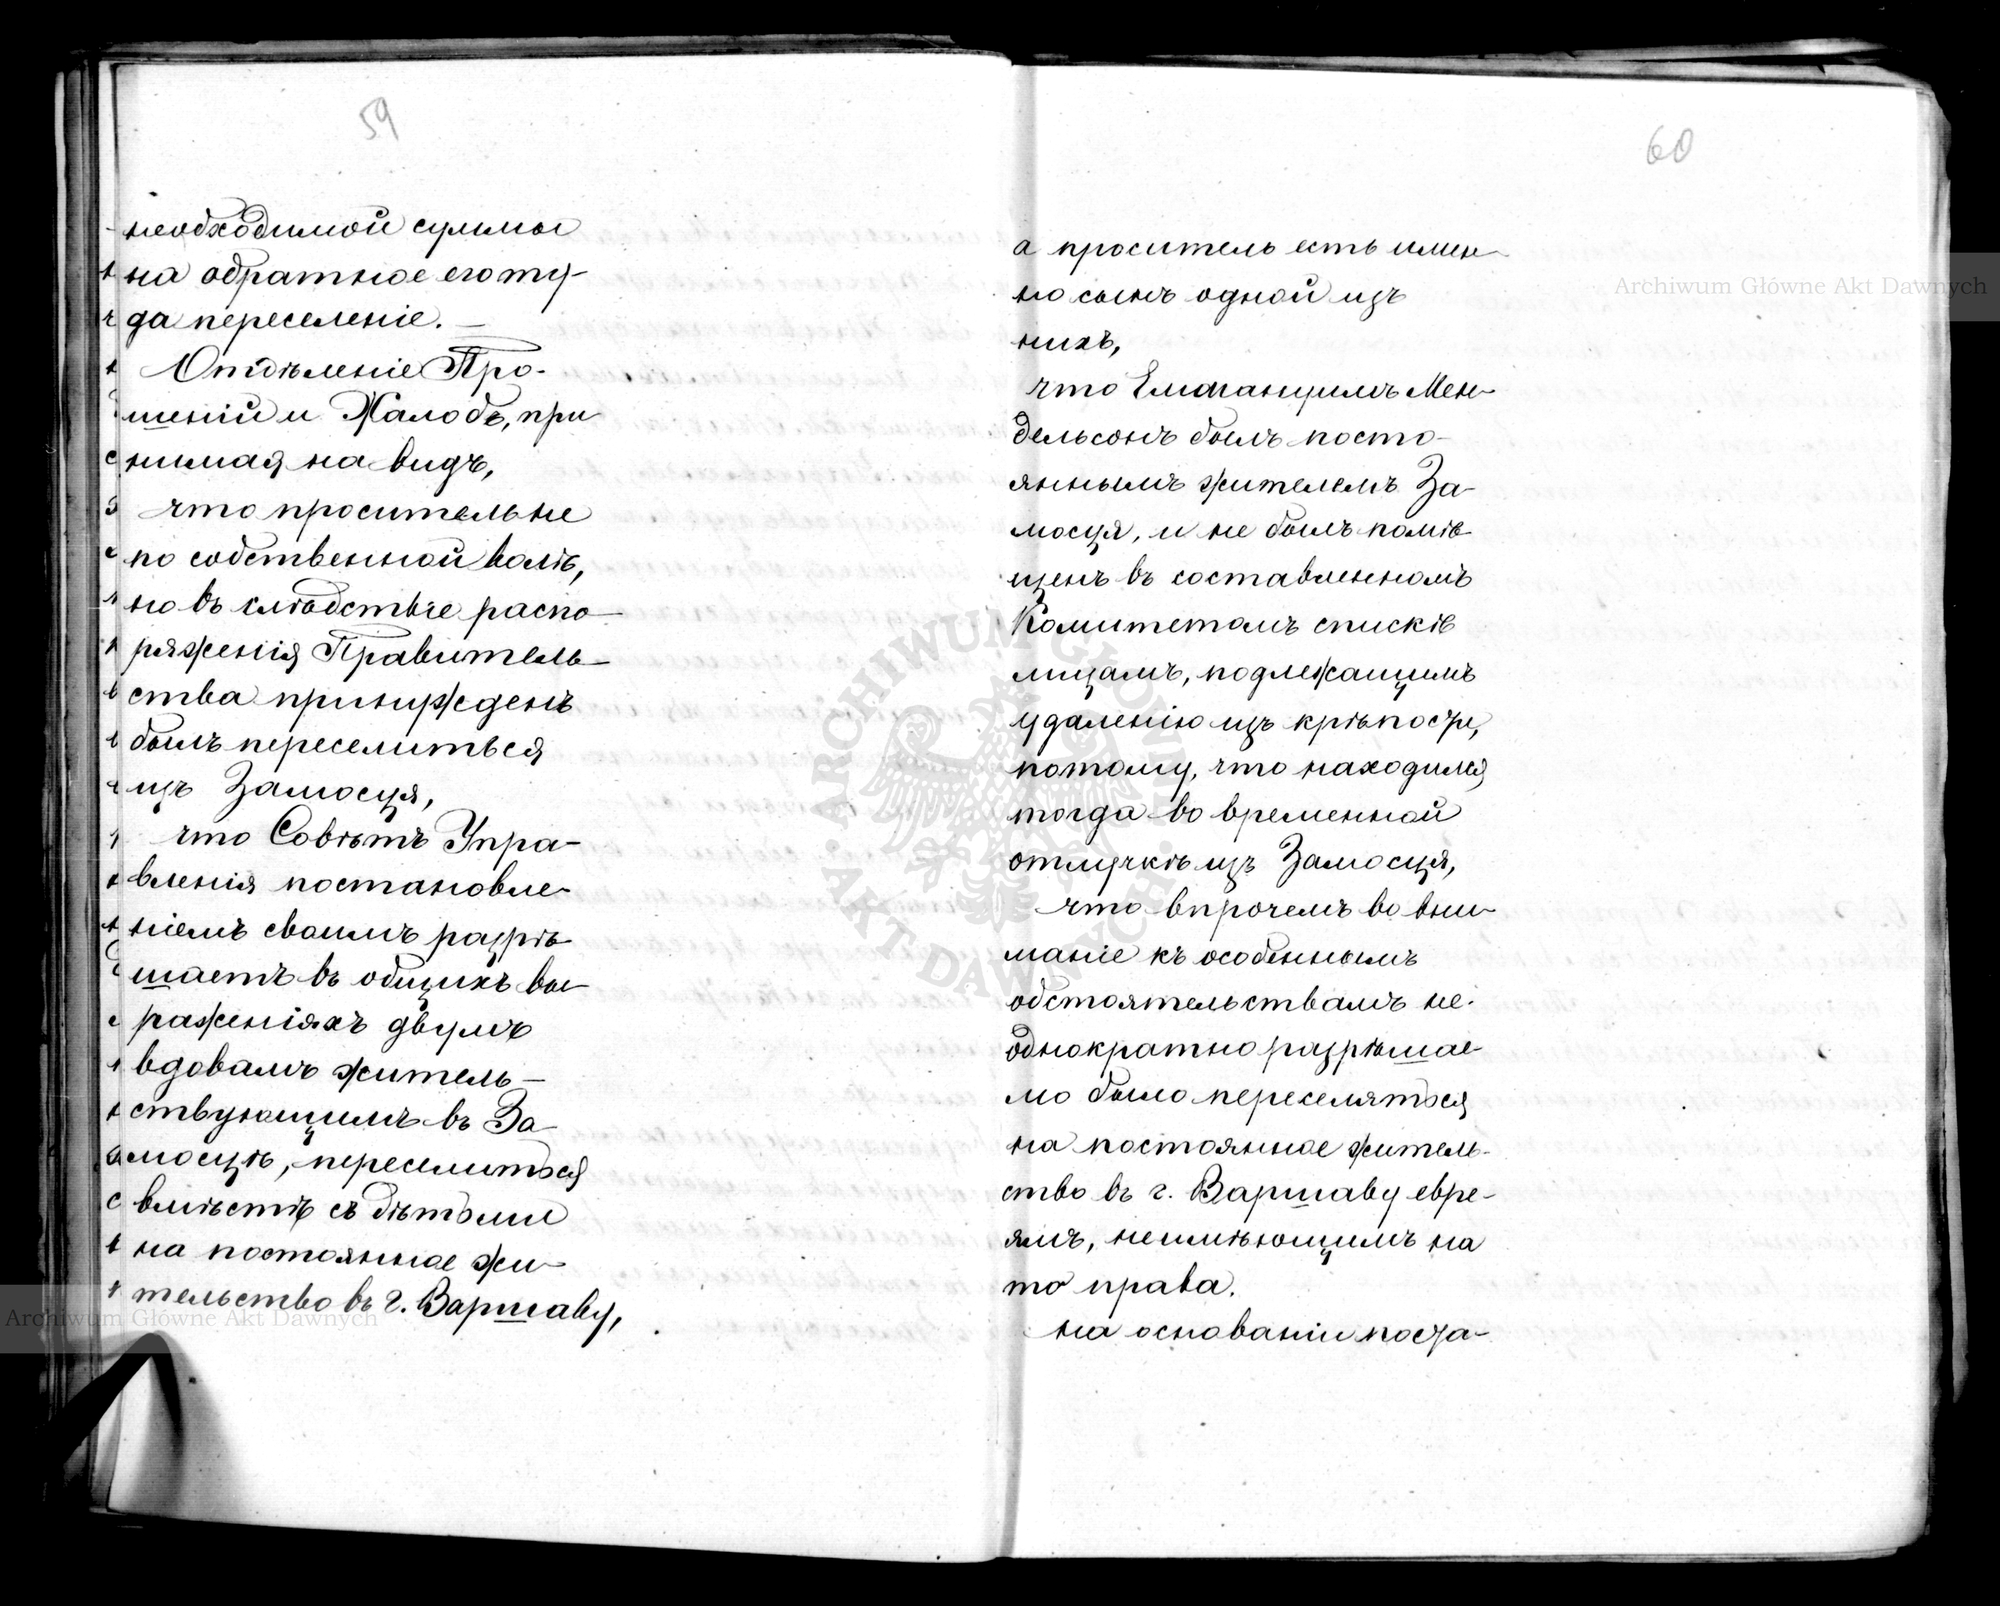 59
необходимой суммы
на обратное его ту-
да переселеніе. —
Отдѣленіе Про-
шеній и Жалобъ, при
нимая на видъ,
что проситель не
по собственной волѣ,
но въ слѣдствіе распо-
ряженія Правитель-
ства принужденъ
былъ переселиться
изъ Замосця,
что Совѣтъ Упра-
вленія постановле-
ніемъ своимъ разрѣ-
шаетъ въ общихъ вы-
раженіяхъ двумъ
вдовамъ житель-
ствующимъ въ За-
мосцѣ, переселиться
вмѣстѣ съ дѣтьми
на постоянное жи-
тельство въ г. Варшаву,
60
а проситель есть имен-
но сынъ одной изъ
нихъ,
что Емануилъ Мен-
дельсонъ былъ посто-
яннымъ жителемъ За-
мосця, и не былъ помѣ-
щенъ въ составленномъ
Комитетомъ спискѣ
лицамъ, подлежащимъ
удаленію изъ крѣпости,
потому, что находился
тогда во временной
отлучкѣ изъ Замосця,
что впрочемъ во вни-
маніе къ особеннымъ
обстоятельствамъ не-
однократно разрѣшае-
мо было переселяться
на постоянное житель-
ство въ г. Варшаву евре-
ямъ, неимѣющимъ на
то права.
на основаніи поста-
Archiwum Główne Akt Dawnych
Archiwum Główne Akt Dawnych
ARCHIWUM GŁÓWNE AKT DAWNYCH